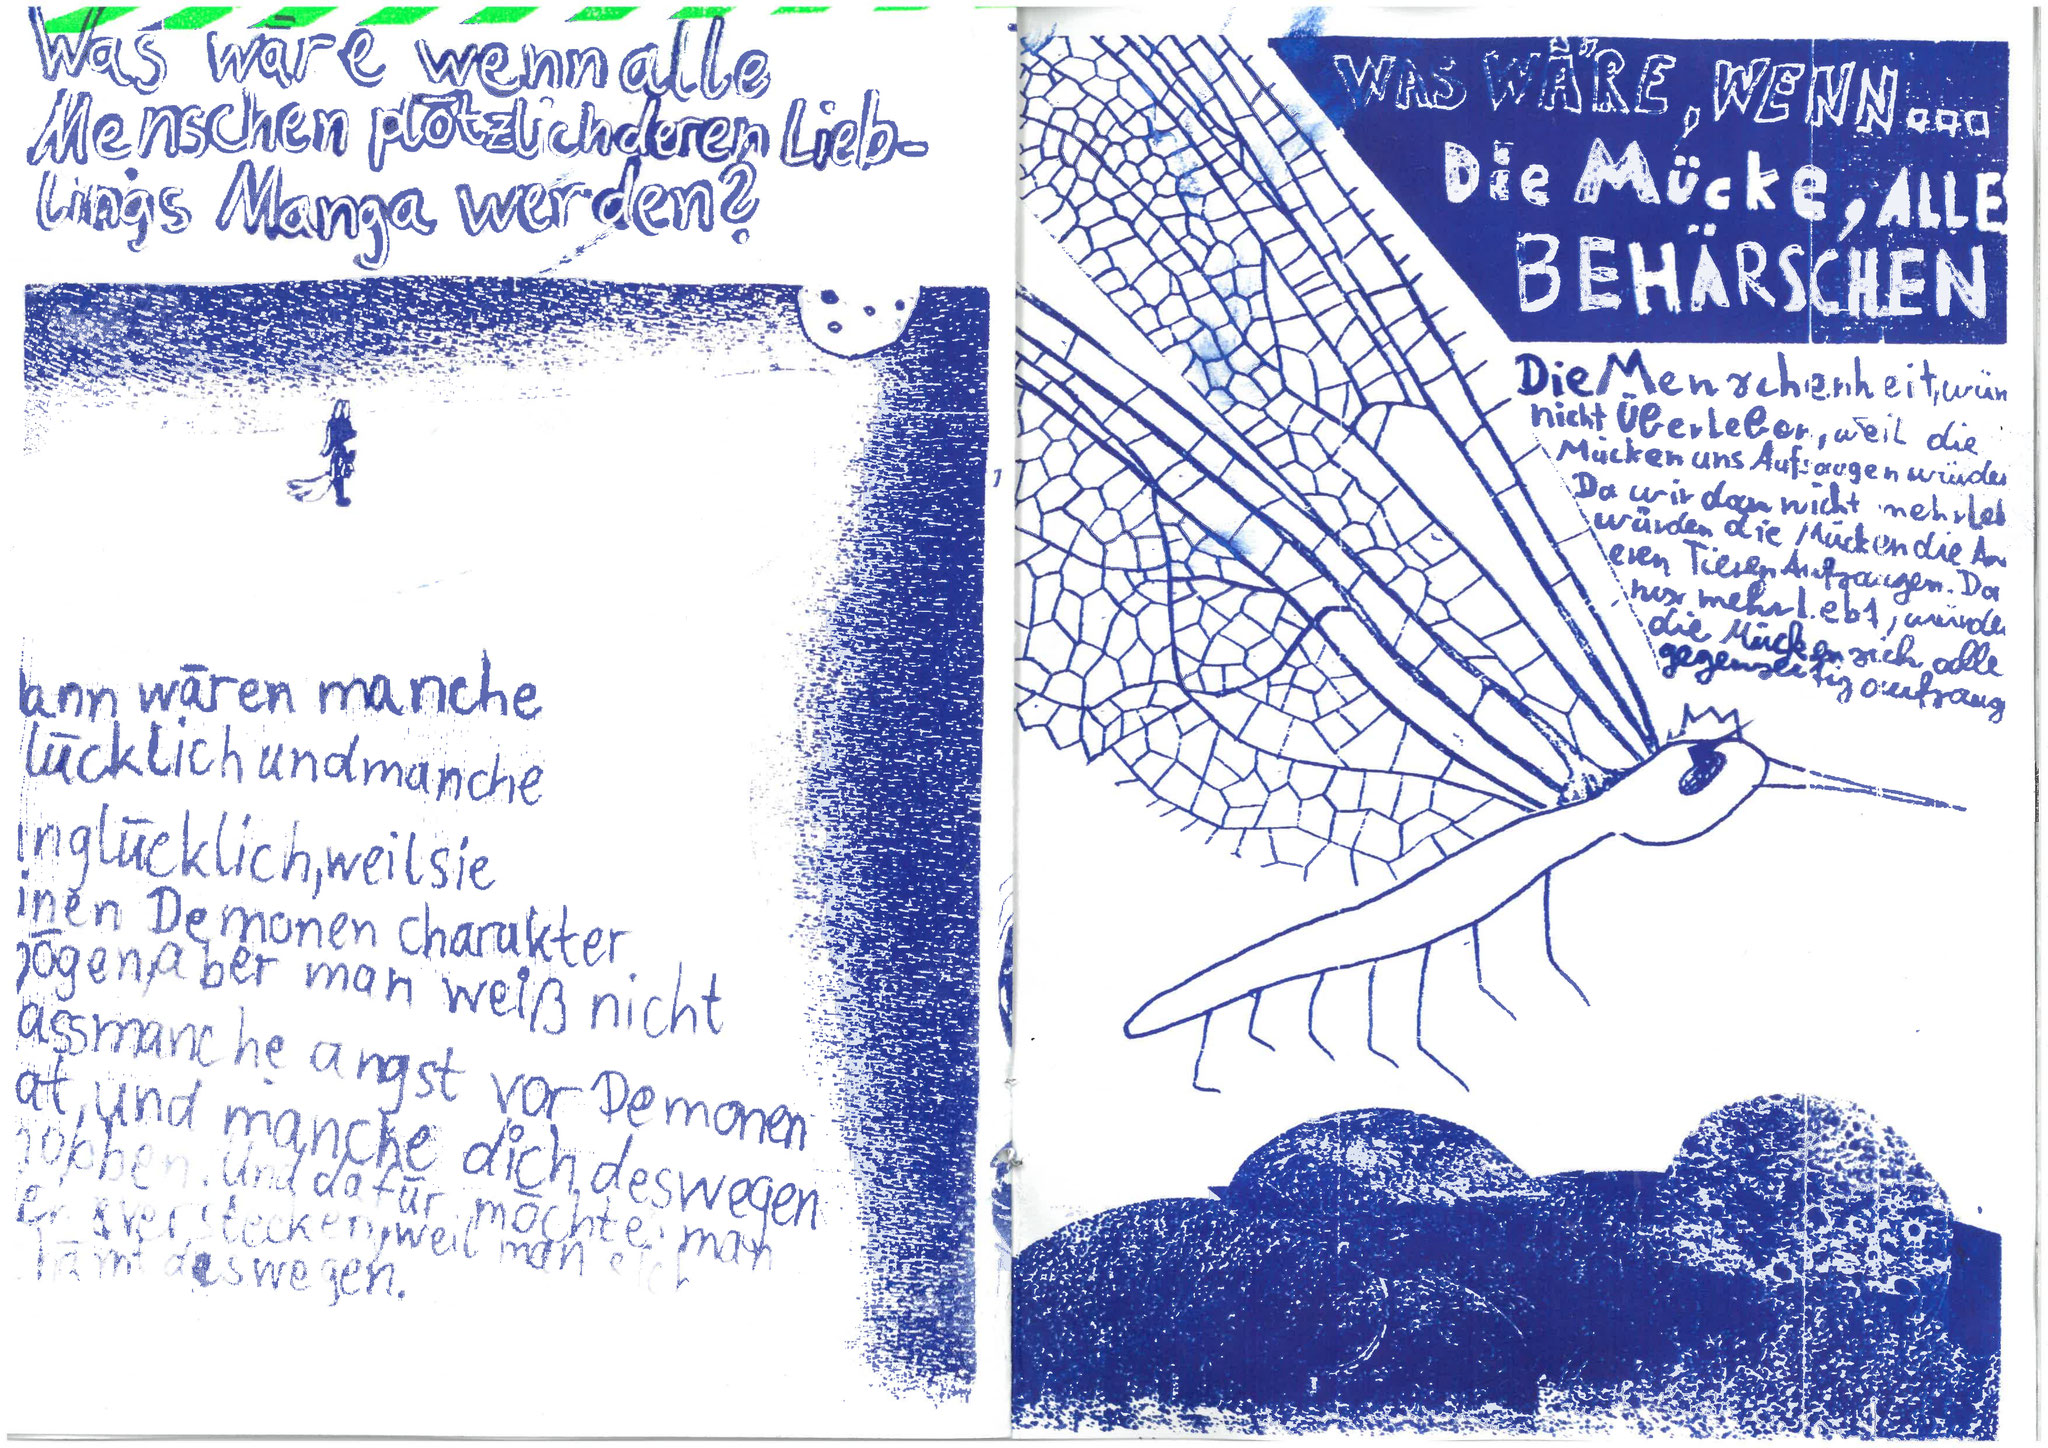 Was wäre wenn alle
Menschen plötzlich deren Lieb-
lings Manga werden?
ann wären manche
lücklich und manche
nglücklich, weil sie
inen Demonen charakter
ögen, aber man weiß nicht
ass manche angst vor Demonen
at, und manche dich deswegen
obben. Und dafür möchte man
er verstecken, weil man
hämt deswegen.
WAS WÄRE, WENN...
Die Mücke, ALLE
BEHÄRSCHEN
Die Menschenheit, wür
nicht Überleben, weil die
Mücken uns Aufsaugen würde
Da wir dann nicht mehr Leb
würden die Mücken die An
eren Tieren Aufsaugen. Da
nur mehr Lebt, würde
die Mücken sich alle
gegenseitig aufsaug